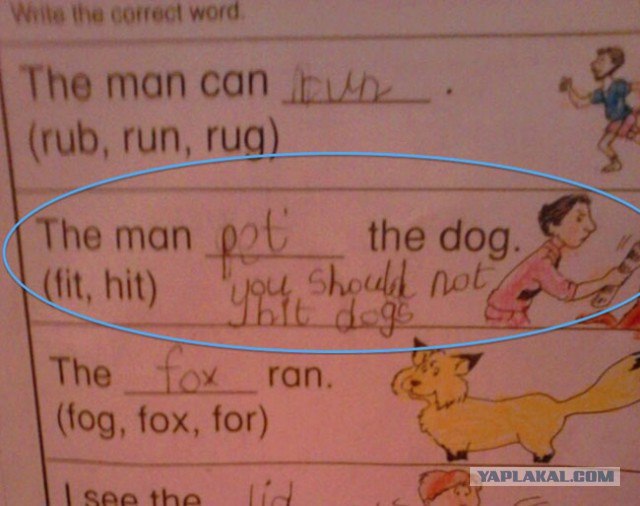 Write the correct word.
The man can run .
(rub, run, rug)
The man pet the dog.
(fit, hit) you should not
hit dogs
The fox ran.
(fog, fox, for)
YAPLAKAL.COM
I see the lid